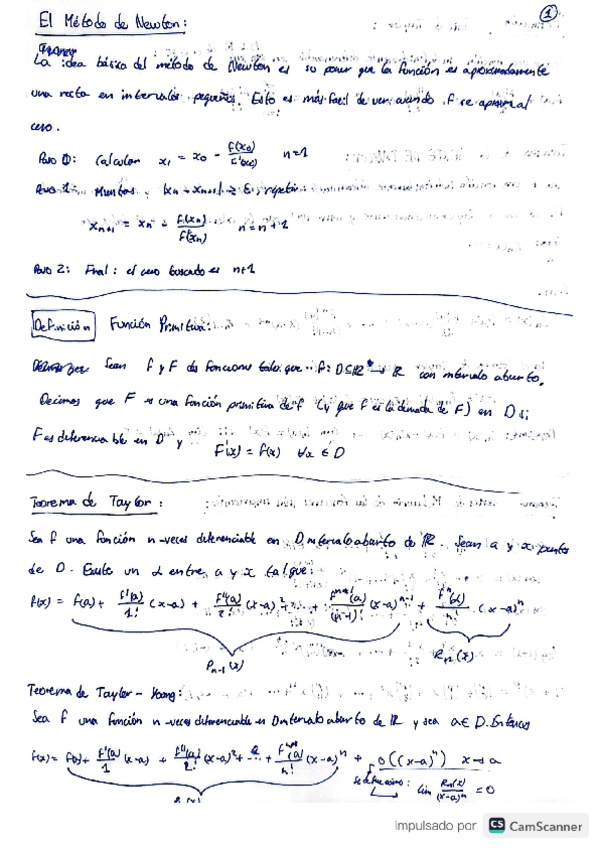 El Método de Newton: 1
La idea básica del método de Newton es suponer que la función es aproximadamente
una recta en intervalos pequeños. Esto es más facil de ver cuando f se aproxima al
cero.
Paso 0: Calcular x₁ = x₀ - f(x₀)/f'(x₀) n=1
Paso 1: Mientras |xn - xn+1| ≥ ε, repetir:
xn+1 = xn - f(xn)/f'(xn) n = n+1
Paso 2: Final: el cero buscado es n+1
Definición Función Primitiva:
Sean f y F dos funciones tales que f: D⊆R → R con intervalo abierto.
Decimos que F es una función primitiva de f (y que f es la derivada de F) en D si
F es diferenciable en D y F'(x) = f(x) ∀x ∈ D
Teorema de Taylor:
Sea f una función n-veces diferenciable en D intervalo abierto de R. Sean a y x puntos
de D. Existe un α entre a y x tal que:
f(x) = f(a) + f'(a)/1! (x-a) + f''(a)/2! (x-a)² + ... + fⁿ⁻¹(a)/(n-1)! (x-a)ⁿ⁻¹ + fⁿ(α)/n! · (x-a)ⁿ
Pn-1(x) Rn(x)
Teorema de Taylor - Young:
Sea f una función n-veces diferenciable en D intervalo abierto de R y sea a ∈ D. Entonces
f(x) = f(a) + f'(a)/1 (x-a) + f''(a)/2! (x-a)² + ... + fⁿ(a)/n! (x-a)ⁿ + o((x-a)ⁿ) x→a
lim Rn(x)/(x-a)ⁿ = 0
impulsado por CS CamScanner